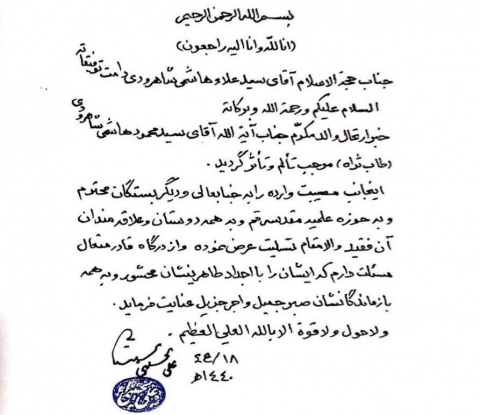 بسم الله الرحمن الرحیم
(انا لله وانا الیه راجعون)
جناب حجة الاسلام آقای سید علاء هاشمی شاهرودی دامت توفیقاته
السلام علیکم ورحمة الله وبرکاته
خبر ارتحال والد مکرّم جناب آیة الله آقای سید محمود هاشمی شاهرودی
(طاب ثراه) موجب تألم وتأثر گردید .
اینجانب مصیبت وارده را به جنابعالی ودیگر بستگان محترم
وبه حوزه علمیه مقدسه قم وبه همه دوستان وعلاقه مندان
آن فقید والامقام تسلیت عرض نموده واز درگاه قادر متعال
مسئلت دارم که ایشان را با اجداد طاهرینشان محشور وبه همه
بازماندگانشان صبر جمیل واجر جزیل عنایت فرماید .
ولا حول ولا قوة الا بالله العلی العظیم .
۱۸/ع۲
۱٤٤۰هـ
علی الحسینی السیستانی